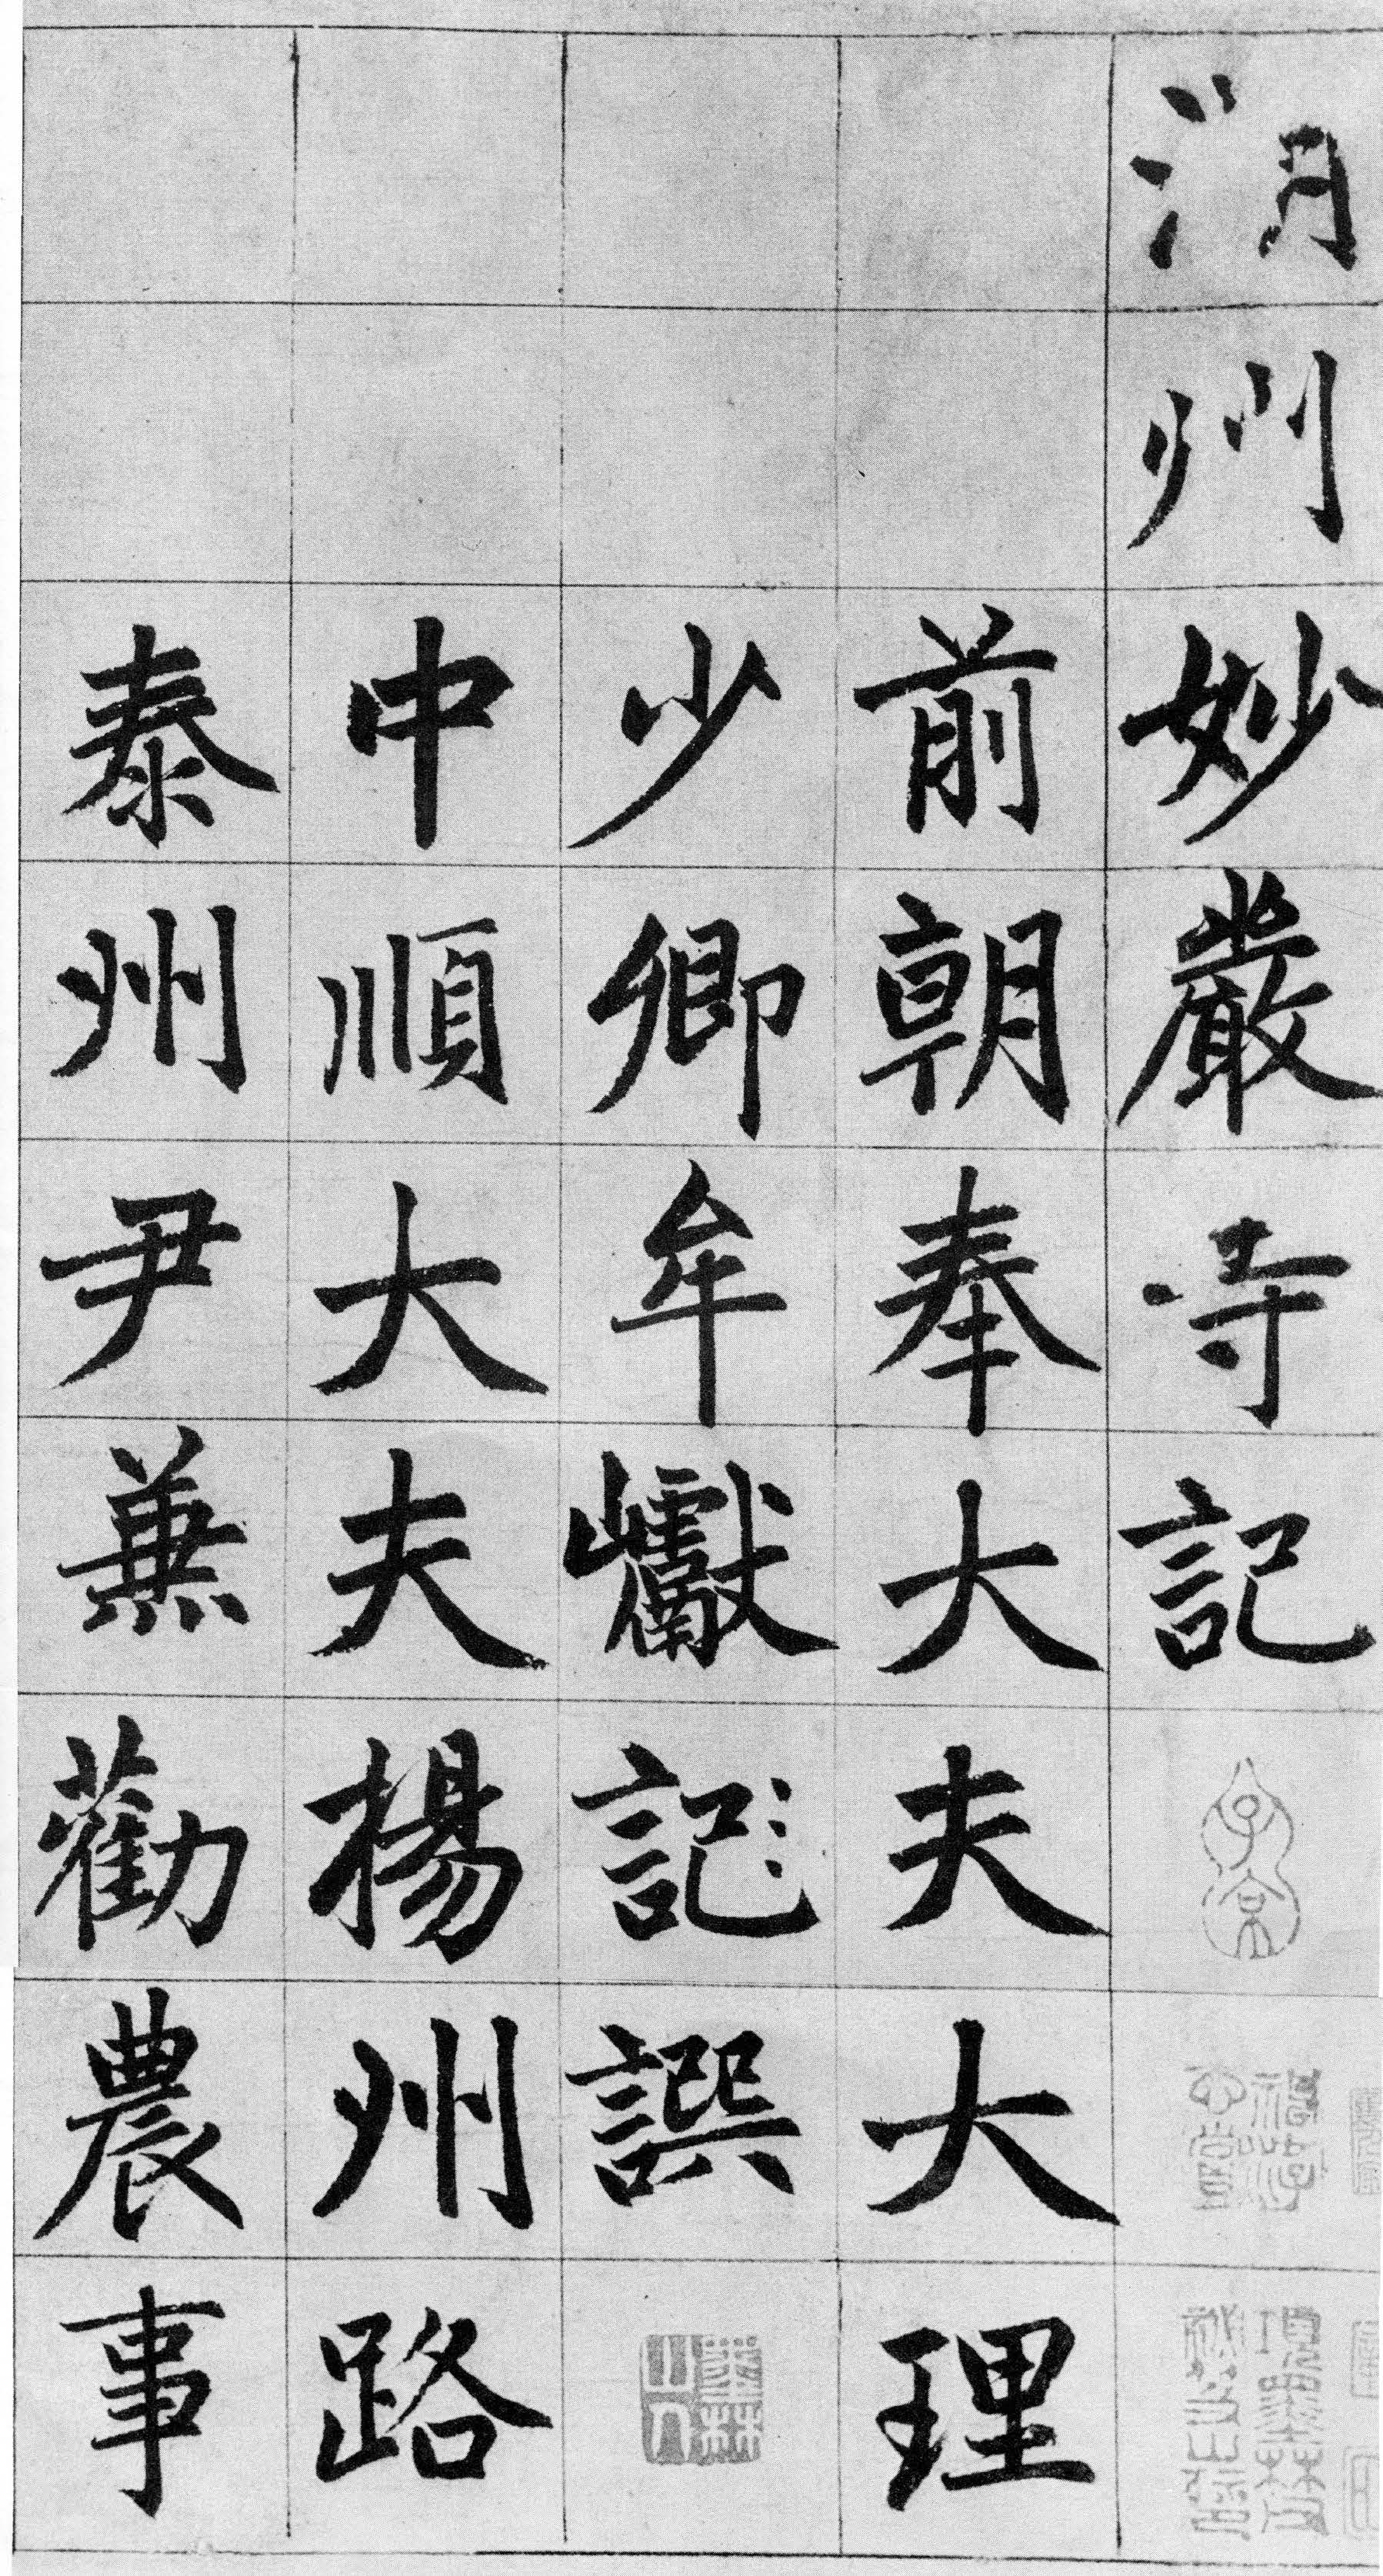 湖州妙嚴寺記
前朝奉大夫大理
少卿牟巘記譔
中順大夫揚州路
泰州尹兼勸農事